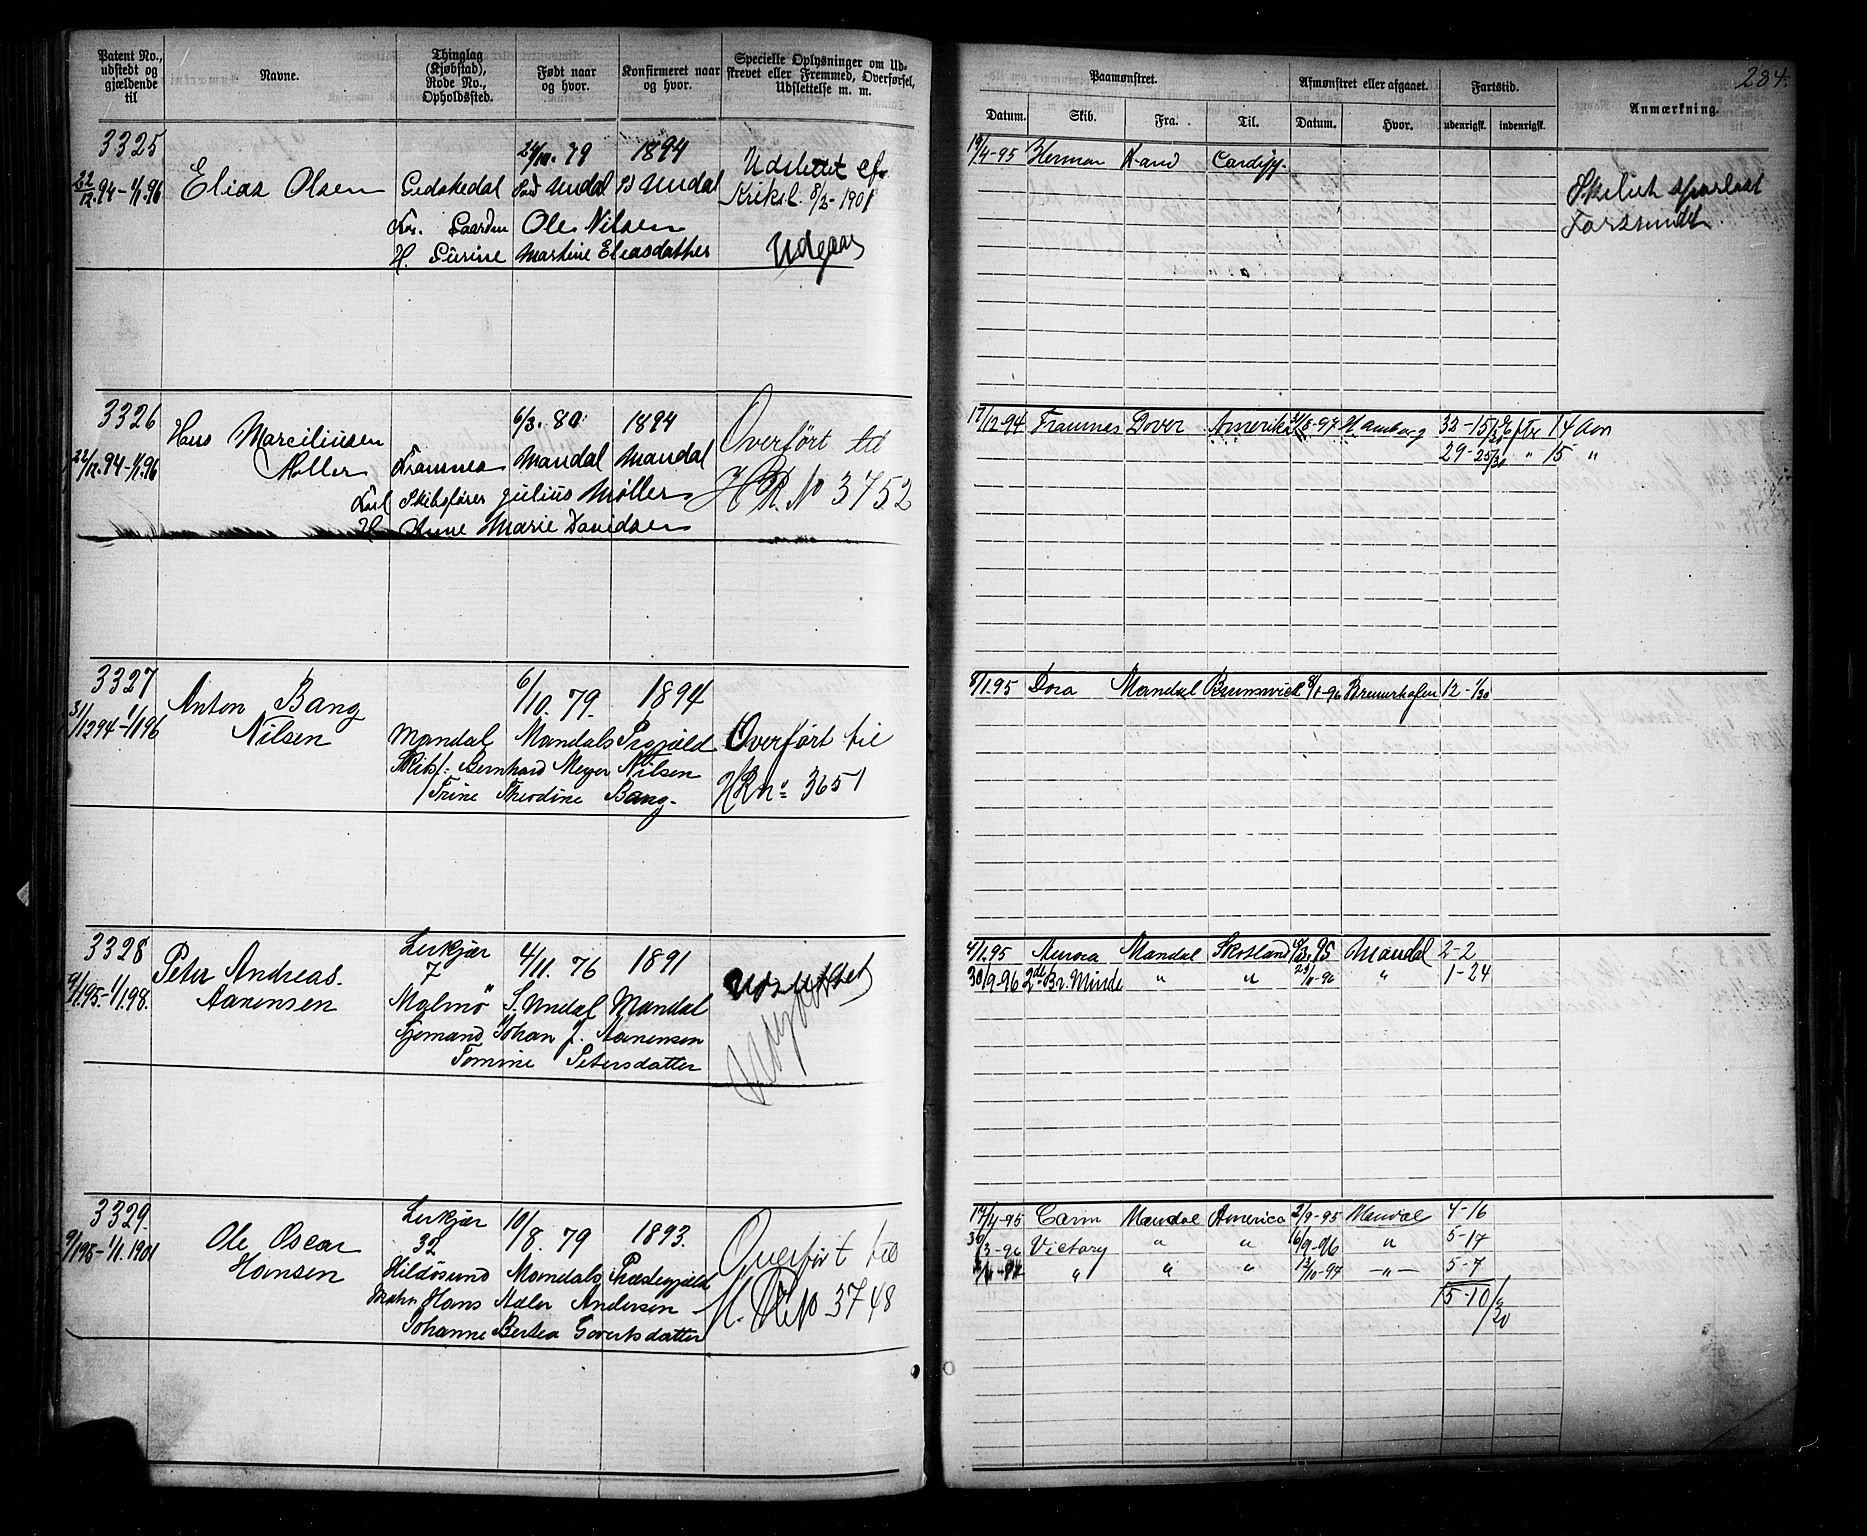 Patent No., udstedt og gjældende til
Navne.
Thinglag (Kjøbstad), Rode No., Opholdssted.
Født naar og hvor.
Konfirmeret naar og hvor.
Specielle Oplysninger om Udskrevet eller Fremmed, Overførsel, Udslettelse m. m.
3325
22/12.94-1/1.96
Elias Olsen
24/10.79
1894
Gudskedal
Undal
Undal
Ole Nilsen
H. Gurine
Martine Eliasdatter
Udslettet ef.
8/2-1901
Udgaar
3326
22/12.94-1/1.96
Hans Marciliusen
Møller
6/3.80
1894
Framnes
Mandal
Mandal
Skibsfører Julius Møller
H Anne Marie Davidsen
Overført til
H R. No 3752
3327
31/1294-1/196
Anton Bang
Nilsen
6/10.79.
1894
Mandal
Mandals Prgjæld
Skibsf: Bernhard Meyer Nilsen
/Trine Theodine Bang-
Overført til
HR no 3651
3328
4/1.95-1/1.98.
Peter Andreas
Aanensen
Lerkjær
7
4/11.76
1891
Malmö
S. Undal
Mandal
Johan J. Aanensen
Tomine Petersdatter
Udslettet
3329.
9/1 95-1/1.1901
Ole Oscar
Hansen
Lerkjær
32
10/8.79
1893.
Hildösund
Mandals Præstegjæld
Hans Adler Andersen
Johanne Bertea Govertsdatter
Overført til
H. R No 3748
234.
Paamønstret.
Afmønstret eller afgaaet.
Fartstid.
Anmærkning.
Datum.
Skib.
Fra:
Til.
Datum.
Hvor.
udenrigsk.
indenrigsk.
19/4-95 Herman Kand Cardiff.
Skibet sporløst
Forsvundet
17/12-94 Framnes Dover Amerika 31/8-97 Hamborg 32-15/30 eftr 14 Aar
29-25/30 " 15 "
8/1.95 Dora Mandal Brunsvick 8/1-96 Bremerhafen 12-1/30
4/1.95 Aurora Mandal Skotland 6/3.95 Mandal 2-2
30/9-96 2de Br. Minde " " 23/11-96 " 1-24
17/4-95 Carin Mandal America 2/9-95 Mandal 4-16
30/3-96 Victory " " 16/9-96 " 5-17
" " " 12/10-97 -"- 5-7
15-10/20